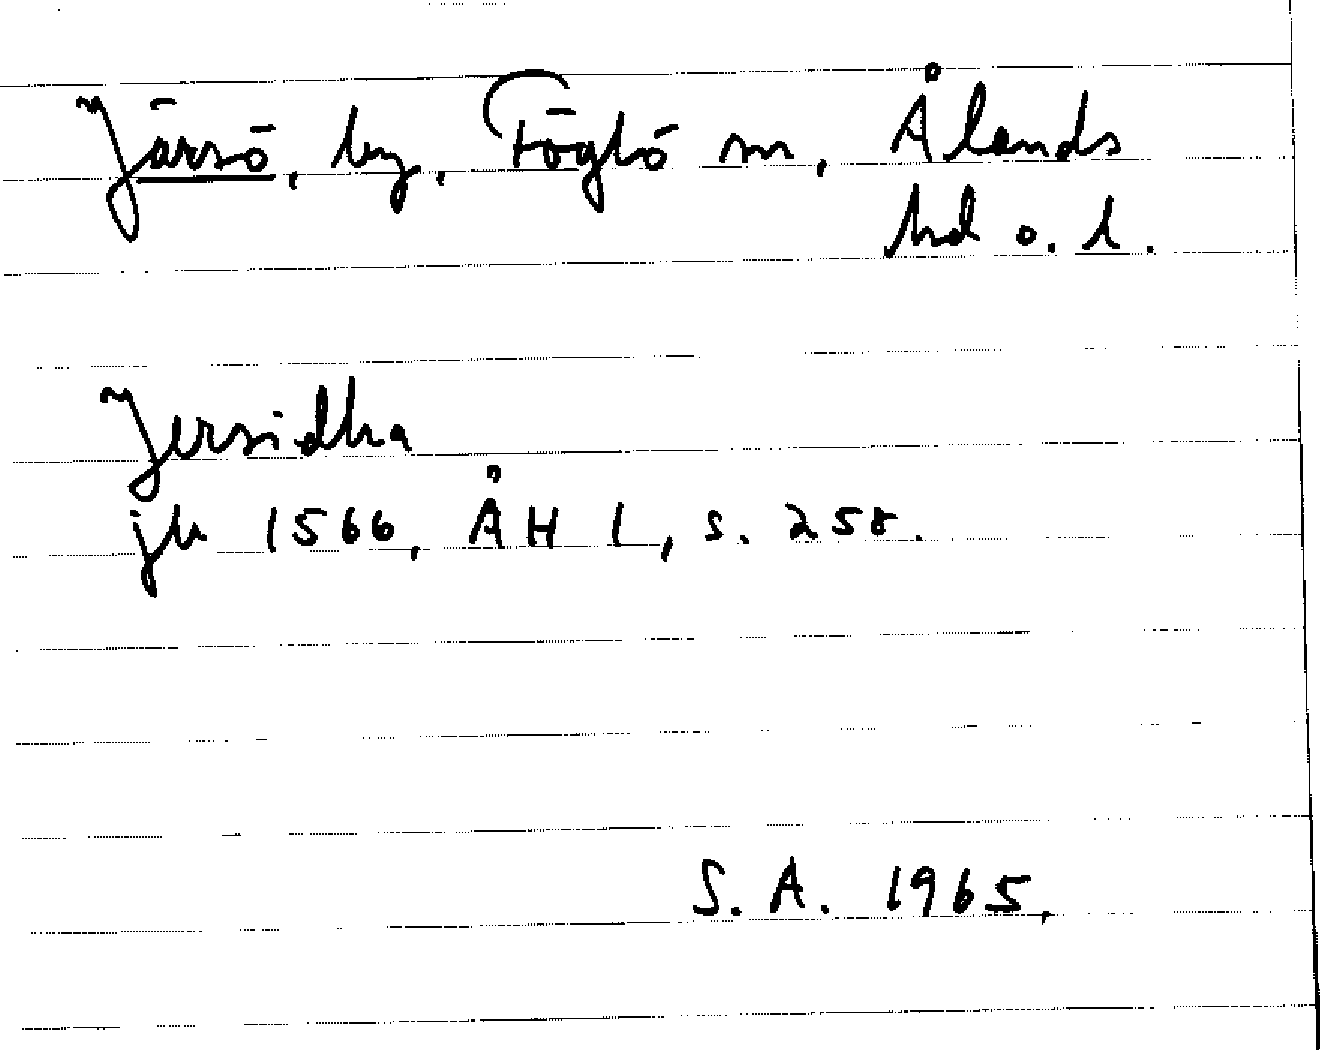 Järsö, by, Föglö sn, Ålands
hd o. l.
Jersidha
jb 1566, ÅH 1, s. 258.
S.A. 1965.